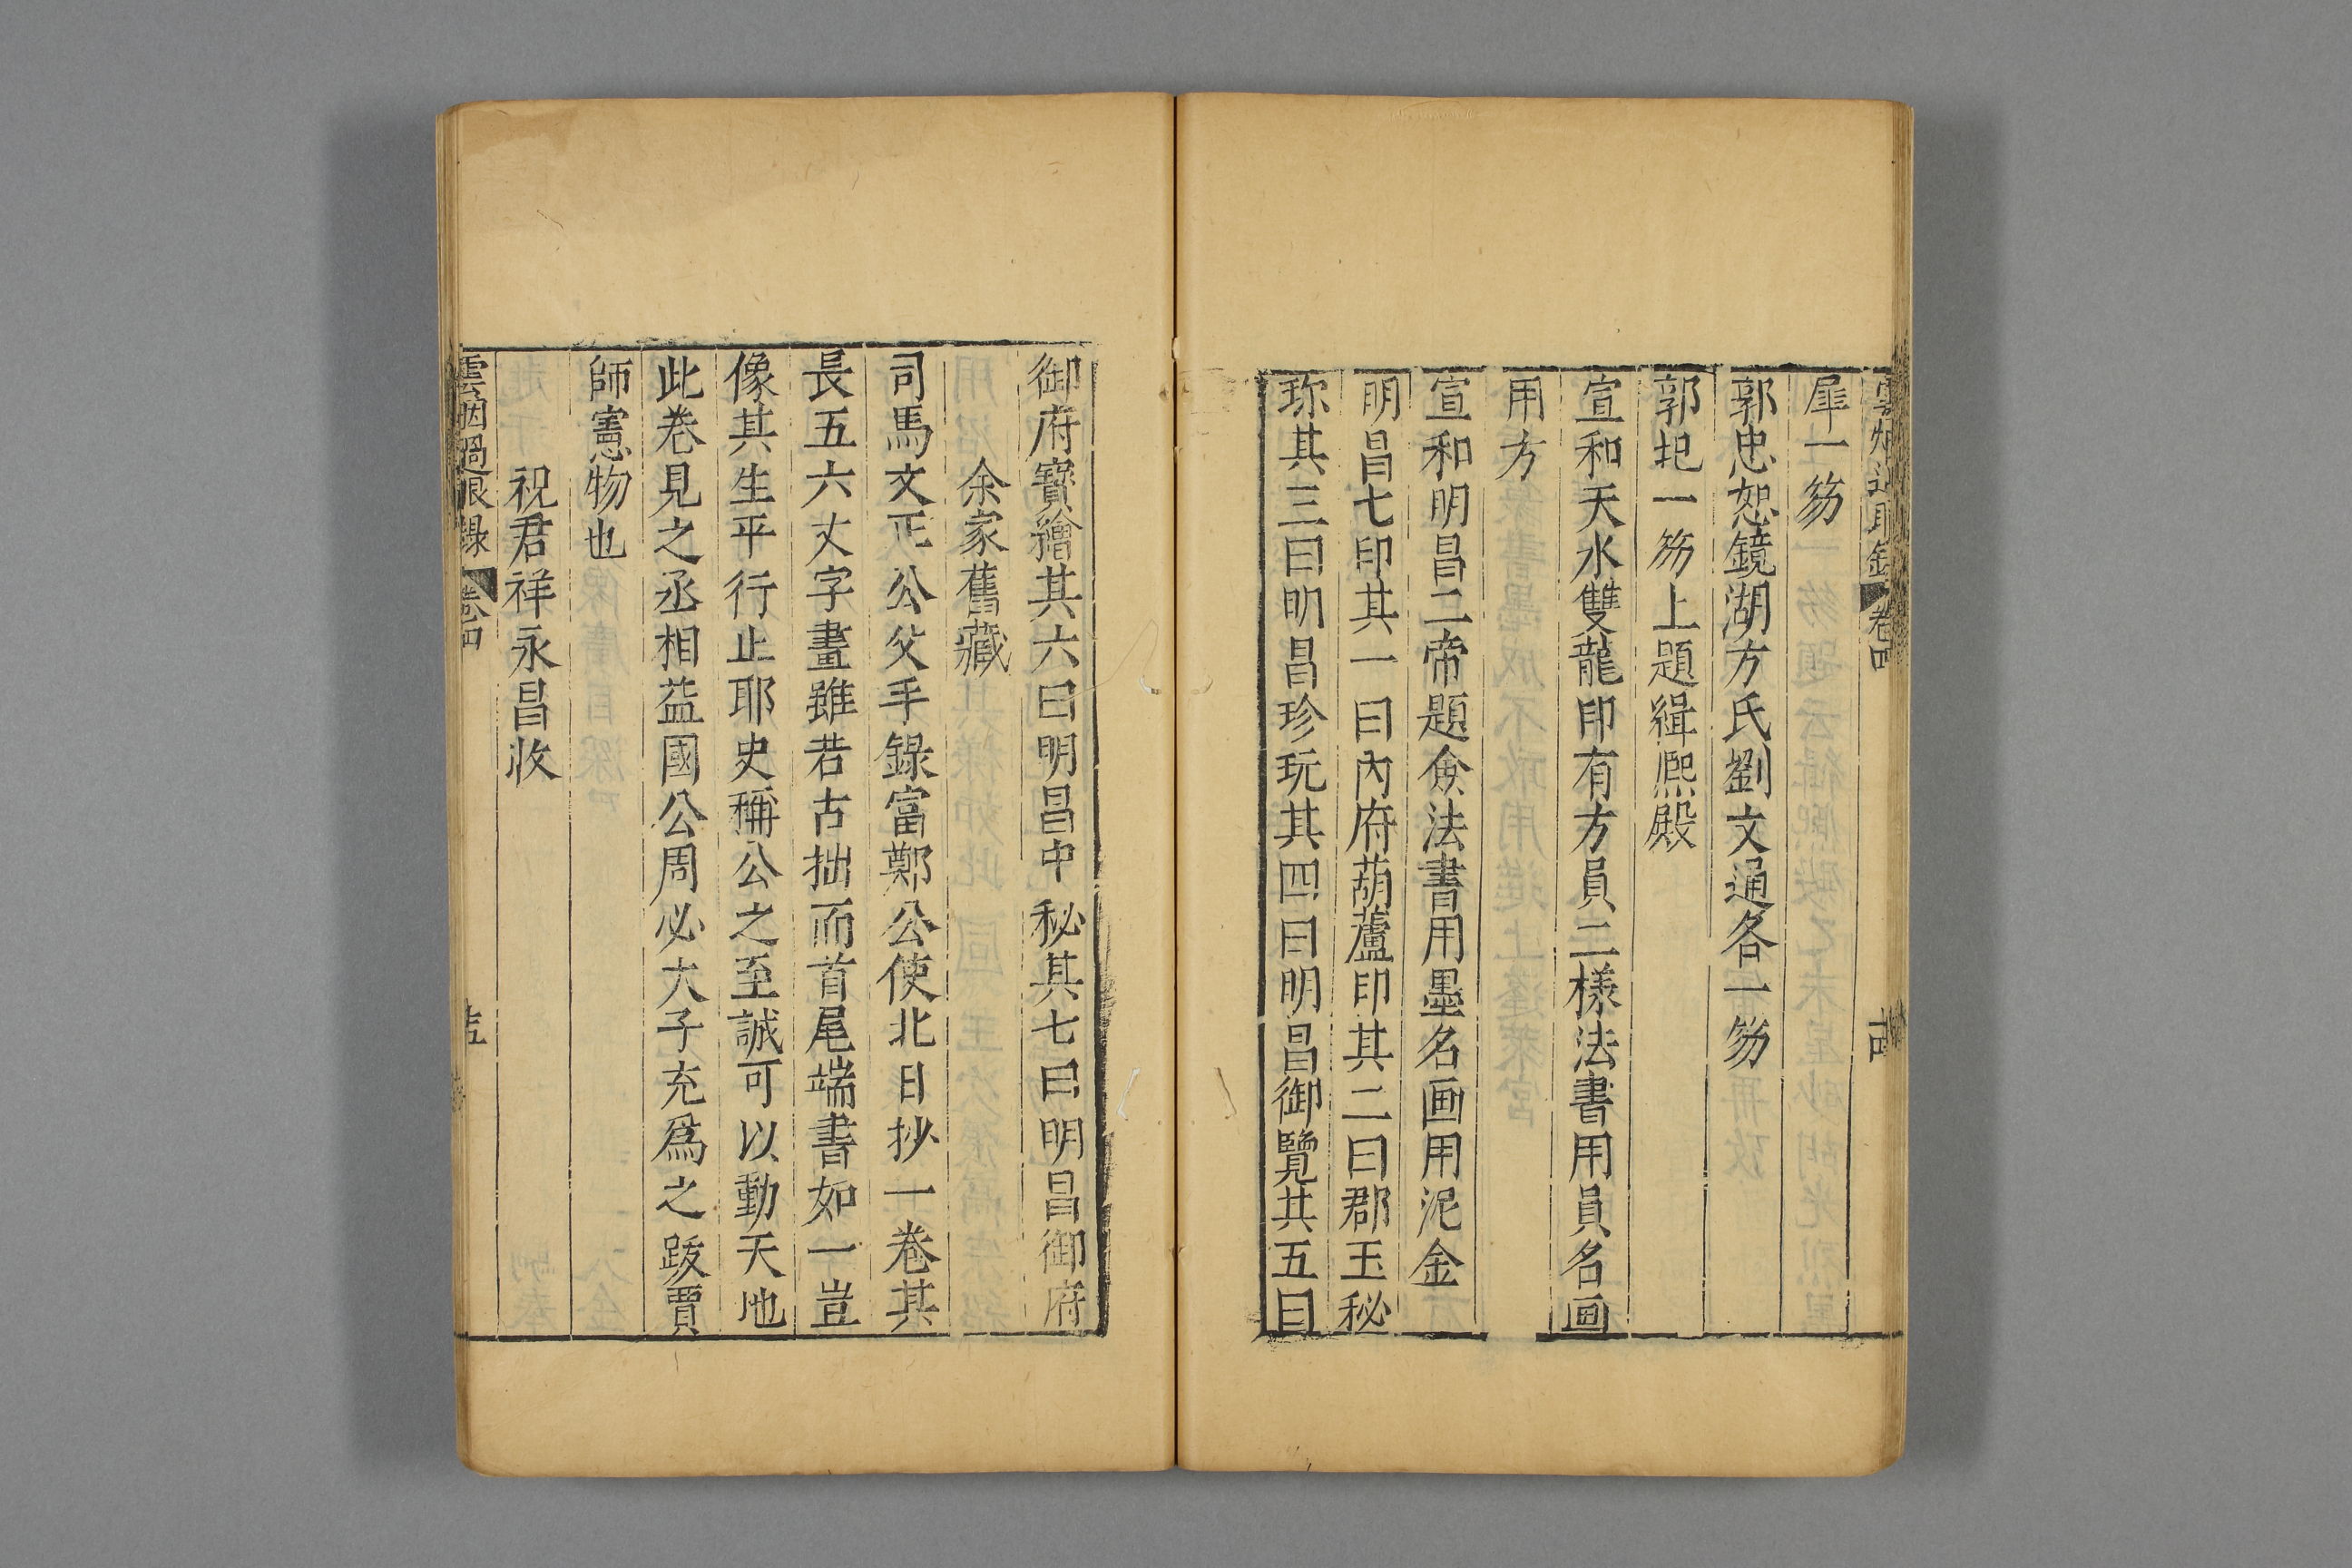 雲烟過眼錄 卷四 十四
犀一笏
郭忠恕鏡湖方氏劉文通各一笏
郭玘一笏上題緝熈殿
宣和天水雙龍印有方員二樣法書用員名画
用方
宣和明昌二帝題僉法書用墨名画用泥金
明昌七印其一曰內府葫蘆印其二曰郡玉秘
珎其三曰明昌珍玩其四曰明昌御覽其五曰
御府寳繪其六曰明昌中秘其七曰明昌御府
余家舊藏
司馬文正公父手錄富鄭公使北日抄一卷其
長五六丈字畫雖若古拙而首尾端書如一豈
像其生平行止耶史稱公之至誠可以動天地
此卷見之丞相益國公周必大子充爲之跋賈
師憲物也
祝君祥永昌收
雲烟過眼錄 卷四